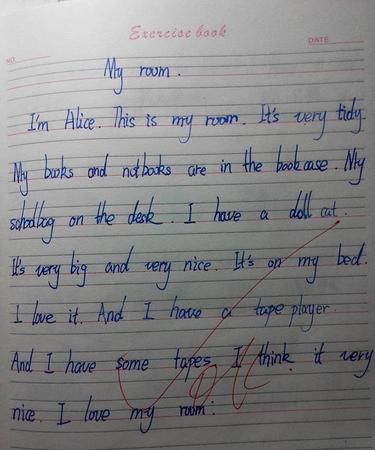 Exercise book
NO. DATE
My room.
I'm Alice. This is my room. It's very tidy.
My books and notbooks are in the bookcase. My
schoolbag on the desk. I have a doll cat.
It's very big and very nice. It's on my bed.
I love it. And I have a tape player.
And I have some tapes. I think it very
nice. I love my room.